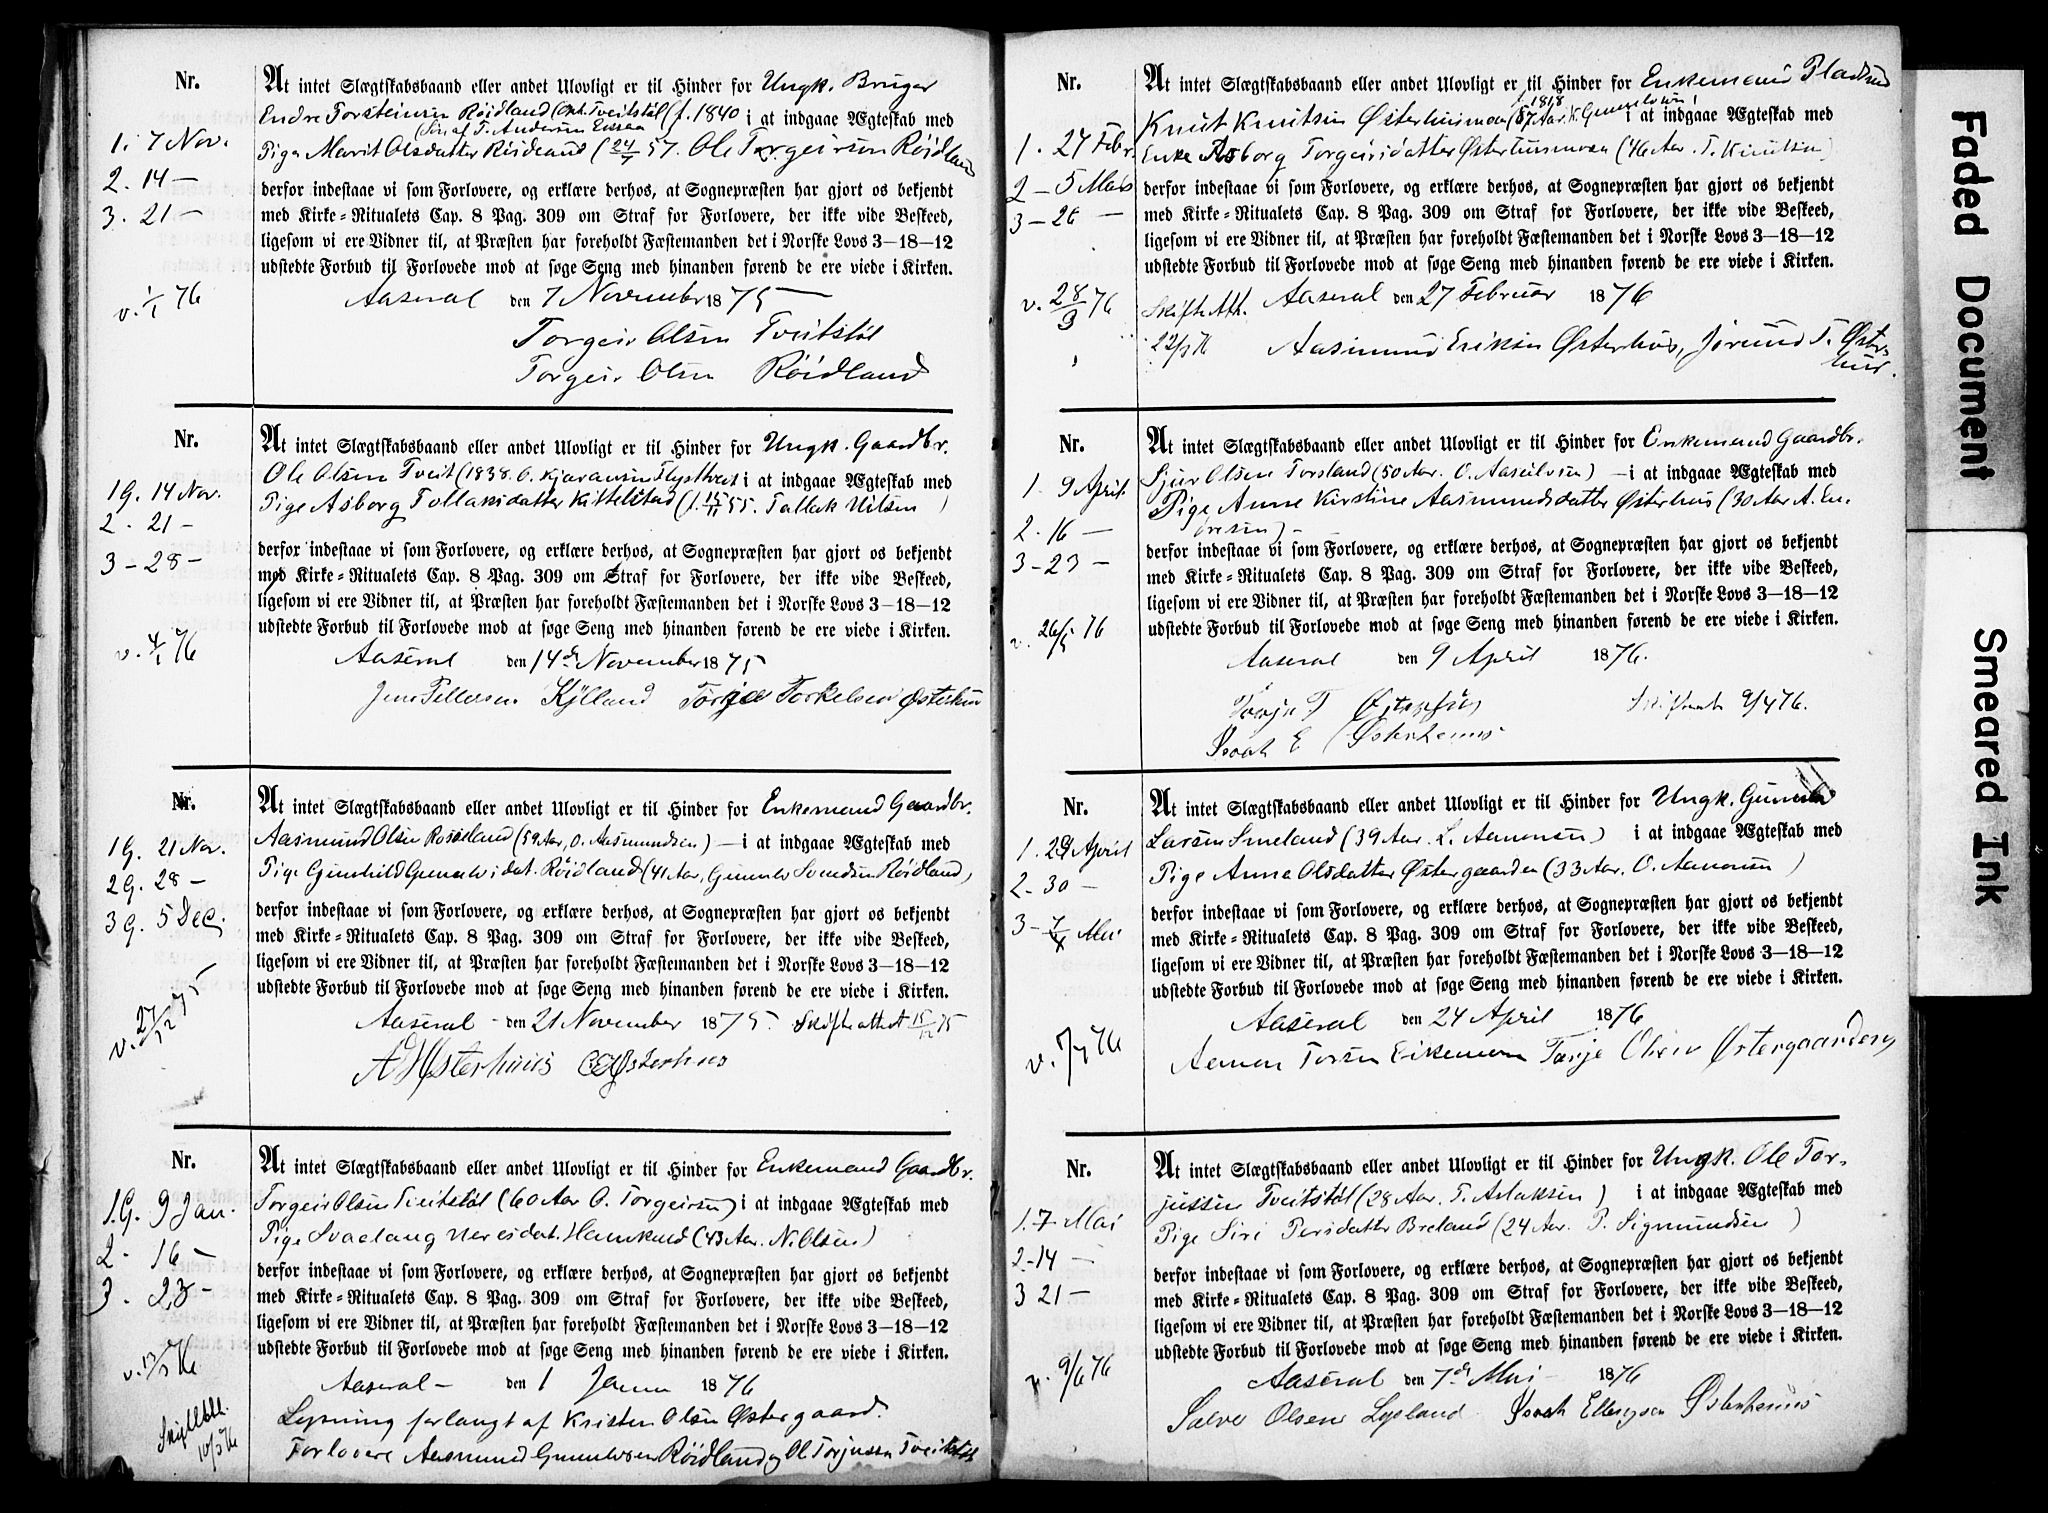 Nr.
At intet Slægtskabsbaand eller andet Ulovligt er til Hinder for Ungk. Bruger
Endre Torsteinsen Røidland (Opk. Tveitstøl) (f. 1840 i at indgaae Ægteskab med
(Søn af T. Andersen
1. 7 Nov.
Pige Marit Olsdatter Røidland (24/7 57. Ole Torgeirsen Røidland
2. 14 —
derfor indestaae vi som Forlovere, og erklære derhos, at Sognepræsten har gjort os bekjendt
3. 21 —
med Kirke-Ritualets Cap. 8 Pag. 309 om Straf for Forlovere, der ikke vide Beskeed,
ligesom vi ere Vidner til, at Præsten har foreholdt Fæstemanden det i Norske Lovs 3—18—12
udstedte Forbud til Forlovede mod at søge Seng med hinanden førend de ere viede i Kirken.
v. 1/1 76
Aaseral den 7 November 1875 —
Torgeir Olsen Tveitstøl
Torgeir Olsen Røidland
Nr.
At intet Slægtskabsbaand eller andet Ulovligt er til Hinder for Ungk. Gaardbr.
Ole Olsen Tveit (1838. O. Kjøransen i at indgaae Ægteskab med
1 G. 14 Nov.
Pige Asborg Tollaksdatter Kittelstad (f. 15/11 55. Tallak Nilsen )
2. 21 —
derfor indestaae vi som Forlovere, og erklære derhos, at Sognepræsten har gjort os bekjendt
3 — 28 —
med Kirke-Ritualets Cap. 8 Pag. 309 om Straf for Forlovere, der ikke vide Beskeed,
ligesom vi ere Vidner til, at Præsten har foreholdt Fæstemanden det i Norske Lovs 3—18—12
udstedte Forbud til Forlovede mod at søge Seng med hinanden førend de ere viede i Kirken.
v. 4/1 76
Aaseral den 14de November 1875
Jens Pettersen Kylland Torje Torkelsen Østerhus
Nr.
At intet Slægtskabsbaand eller andet Ulovligt er til Hinder for Enkemand Gaardbr.
Aasmund Olsen Rosseland (59 Aar, O. Aasmundsen) — i at indgaae Ægteskab med
1 G. 21 Nov.
Pige Gunhild Gunulvsdat. Røidland (41 Aar, Gunulv Svendsen Røidland)
2 G. 28 —
derfor indestaae vi som Forlovere, og erklære derhos, at Sognepræsten har gjort os bekjendt
3 G. 5 Dec.
med Kirke-Ritualets Cap. 8 Pag. 309 om Straf for Forlovere, der ikke vide Beskeed,
ligesom vi ere Vidner til, at Præsten har foreholdt Fæstemanden det i Norske Lovs 3—18—12
udstedte Forbud til Forlovede mod at søge Seng med hinanden førend de ere viede i Kirken.
v. 27/12 75
Aaseral — den 21 November 1875. Skifteattest 15/12 75
Østerhuus Østerhus
Nr.
At intet Slægtskabsbaand eller andet Ulovligt er til Hinder for Enkemand Gaardbr.
1. G. 9 Jan.
Torgeir Olsen Tveitstøl (60 Aar O. Torgeirsen) i at indgaae Ægteskab med
Pige Svaelaug Nerisdat. Hamkund (43 Aar. N. Olsen )
2 - 16 —
derfor indestaae vi som Forlovere, og erklære derhos, at Sognepræsten har gjort os bekjendt
3 . 23 —
med Kirke-Ritualets Cap. 8 Pag. 309 om Straf for Forlovere, der ikke vide Beskeed,
ligesom vi ere Vidner til, at Præsten har foreholdt Fæstemanden det i Norske Lovs 3—18—12
udstedte Forbud til Forlovede mod at søge Seng med hinanden førend de ere viede i Kirken.
v. 13/3 76
Aaseral — den 1 Januar 1876
Lysning forlangt af Kristen Olsen Østergaard.
10/3 76
Forlovere Aasmund Gunulvsen Røidland og Ol. Torjussen Tveitstøl
Nr.
At intet Slægtskabsbaand eller andet Ulovligt er til Hinder for Enkemand Pladsmd
Knut Knutsen Østerhusmoen (f. 1818 57 Aar. K. Gunulvsen) i at indgaae Ægteskab med
1. 27 Febr.
Enke Asborg Torgeirsdatter Østerhusmoen (46 Aar. T. Knutsen)
2 — 5 Mars
derfor indestaae vi som Forlovere, og erklære derhos, at Sognepræsten har gjort os bekjendt
3 — 26 —
med Kirke-Ritualets Cap. 8 Pag. 309 om Straf for Forlovere, der ikke vide Beskeed,
ligesom vi ere Vidner til, at Præsten har foreholdt Fæstemanden det i Norske Lovs 3—18—12
udstedte Forbud til Forlovede mod at søge Seng med hinanden førend de ere viede i Kirken.
v. 28/3 76
Skifte Att. Aaseral den 27 Februar 1876
22/3 76 Aasmund Eriksen Østerhus, Jørund T. Øster-
hus.
Nr.
At intet Slægtskabsbaand eller andet Ulovligt er til Hinder for Enkemand Gaardbr.
Sjur Olsen Torsland (50 Aar. O. Aasulvsen) — i at indgaae Ægteskab med
1. 9 April.
Pige Anne Kirstine Aasmundsdatter Østerhus (30 Aar A. En-
2 — 16 —
dresen) —
derfor indestaae vi som Forlovere, og erklære derhos, at Sognepræsten har gjort os bekjendt
3 — 23 —
med Kirke-Ritualets Cap. 8 Pag. 309 om Straf for Forlovere, der ikke vide Beskeed,
ligesom vi ere Vidner til, at Præsten har foreholdt Fæstemanden det i Norske Lovs 3—18—12
udstedte Forbud til Forlovede mod at søge Seng med hinanden førend de ere viede i Kirken.
v. 26/5 76
Aaseral den 9 April 1876.
Torje T Østerhus 9/4 76.
Isaak E Østerhuus
Nr.
At intet Slægtskabsbaand eller andet Ulovligt er til Hinder for Ungk. Gunnar
Larsen Smeland (39 Aar. L. Aamonsen) i at indgaae Ægteskab med
1. 24 April
Pige Anne Olsdatter Østergaarden (33 Aar. O. Aamonsen )
2 - 30 —
derfor indestaae vi som Forlovere, og erklære derhos, at Sognepræsten har gjort os bekjendt
3 — 7 Mai
med Kirke-Ritualets Cap. 8 Pag. 309 om Straf for Forlovere, der ikke vide Beskeed,
ligesom vi ere Vidner til, at Præsten har foreholdt Fæstemanden det i Norske Lovs 3—18—12
udstedte Forbud til Forlovede mod at søge Seng med hinanden førend de ere viede i Kirken.
Aaseral den 24 April 1876
Aamon Torsen Eikemoen Tarje Olsen Østergaarden
Nr.
At intet Slægtskabsbaand eller andet Ulovligt er til Hinder for Ungk. Ole Tor-
jussen Tveitstøl (28 Aar. T. Aslaksen ) i at indgaae Ægteskab med
1. 7 Mai
Pige Siri Persdatter Breland (24 Aar. P. Sigmundsen )
2 - 14 —
derfor indestaae vi som Forlovere, og erklære derhos, at Sognepræsten har gjort os bekjendt
3 21 —
med Kirke-Ritualets Cap. 8 Pag. 309 om Straf for Forlovere, der ikke vide Beskeed,
ligesom vi ere Vidner til, at Præsten har foreholdt Fæstemanden det i Norske Lovs 3—18—12
udstedte Forbud til Forlovede mod at søge Seng med hinanden førend de ere viede i Kirken.
v. 9/6 76
Aaseral den 7de Mai 1876
Salve Olsen Lysland Isaak Ellingsen Østerhuus
Faded Document
Smeared Ink